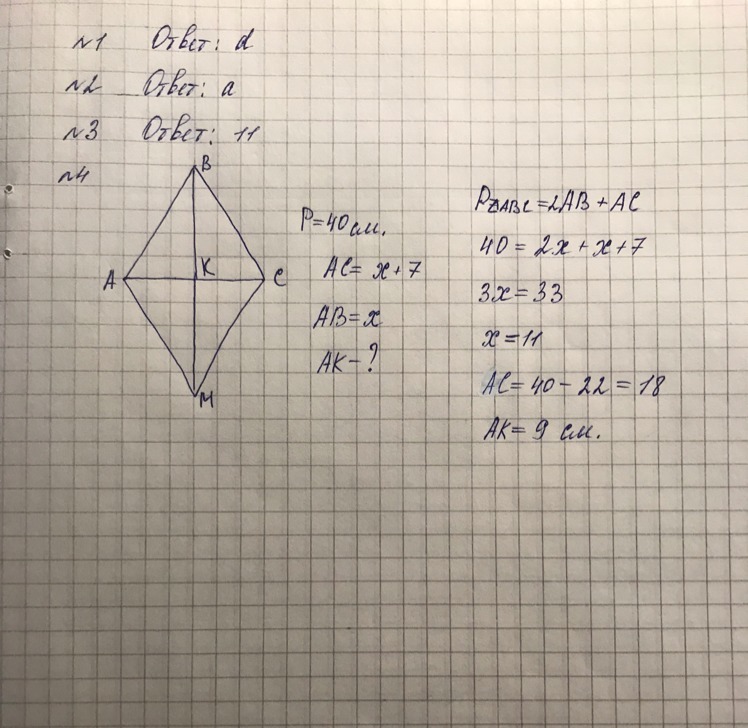 №1 Ответ: d
№2 Ответ: a
№3 Ответ: 11
№4
B
A
K
C
M
P=40 см.
AC= x+7
AB=x
AK-?
P△ABC=2AB+AC
40=2x+x+7
3x=33
x=11
AC=40-22=18
AK=9 см.